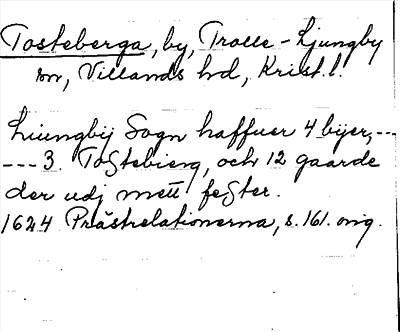 Tosteberga, by, Trolle-Ljungby
sn, Villands hd, Krist. l.
Liungbÿ Sogn haffuer 4 bÿer, ---
--- 3. Tostebierg, och 12 gaarde
der udj mett fester.
1624 Prästrelationerna, s. 161. orig.